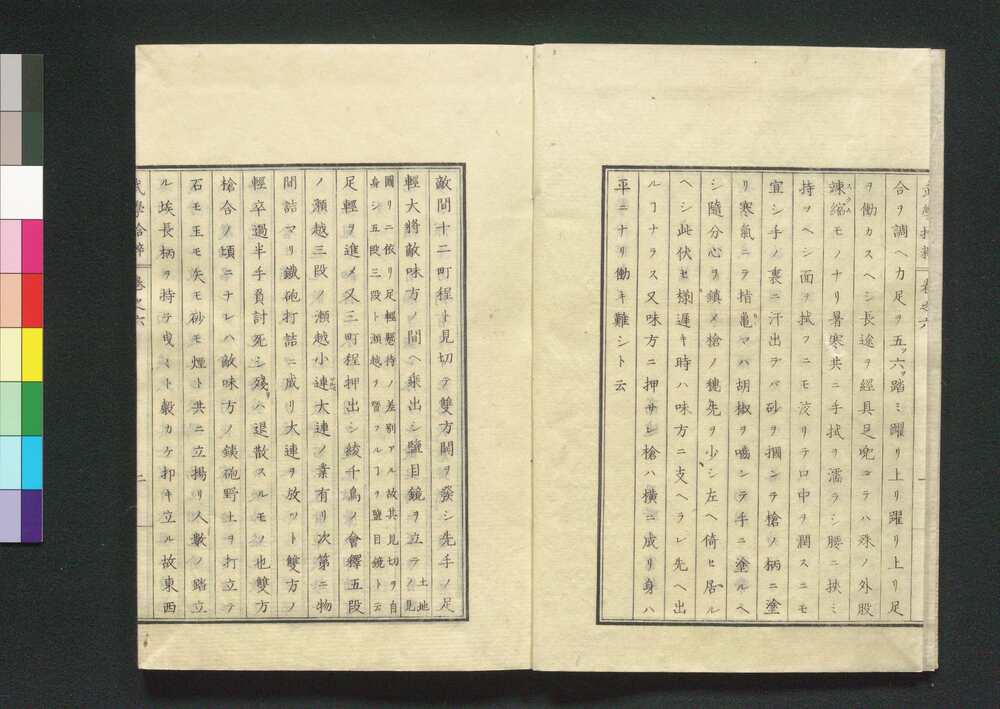 合ヲ調ヘカ足ヲ五ッ六ッ踏ミ躍リ上リ躍リ上リ足
ヲ働カスヘシ長途ヲ經具足兜コラハ殊ノ外股
竦縮モノナリ暑寒共ニ手拭ヲ濡ラシ腰ニ挾ミ
持ツヘシ面ヲ拭フニモ渡リテロ中ヲ潤スニモ
宜シ手ノ裏ニ汗出テバ砂ヲ摑ンテ槍ノ柄ニ塗
リ寒氣ニテ指龜マハ胡椒ヲ嚙シテ手ニ塗ルヘ
シ隨分心ヲ鎮メ槍ノ穂先ヲ少シ左ヘ倚ヒ居ル
ヘシ此伏セ様遲キ時ハ味方ニ支ヘラレ先ヘ出
ルヿナラス又味方ニ押サレ槍ハ横ニ成リ身ハ
平ニナリ働キ難シト云
敵間十二町程ト見切テ雙方鬨ヲ發シ先手ノ足
輕大將敵味方ノ間ヘ乘出シ鹽目鏡ヲ立テノ見
土地
圖リニ依リ足輕懸待ノ差別アル故其見切ヲ自
身シ五段三段ト瀬越ヲ習フルヿヲ鹽目鏡ト云
足輕ヲ進メ又三町程押出シ綾千鳥ノ會釋五段
ノ瀬越三段ノ瀬越小連大連ノ業有リ次第ニ物
間詰マリ鐵砲打詰ニ成リ大連ヲ放ツト雙方ノ
輕卒過半手負討死シ殘ハ退散スルモノ也雙方
槍合ノ頃ニナレハ敵味方ノ銕砲野土ヲ打立テ
石モ玉モ矢モ砂モ煙ト共ニ立揚リ人數ノ踏立
ル埃長柄ヲ持テ曳々ト轂カケ抑キ立ル故東西
卷之六